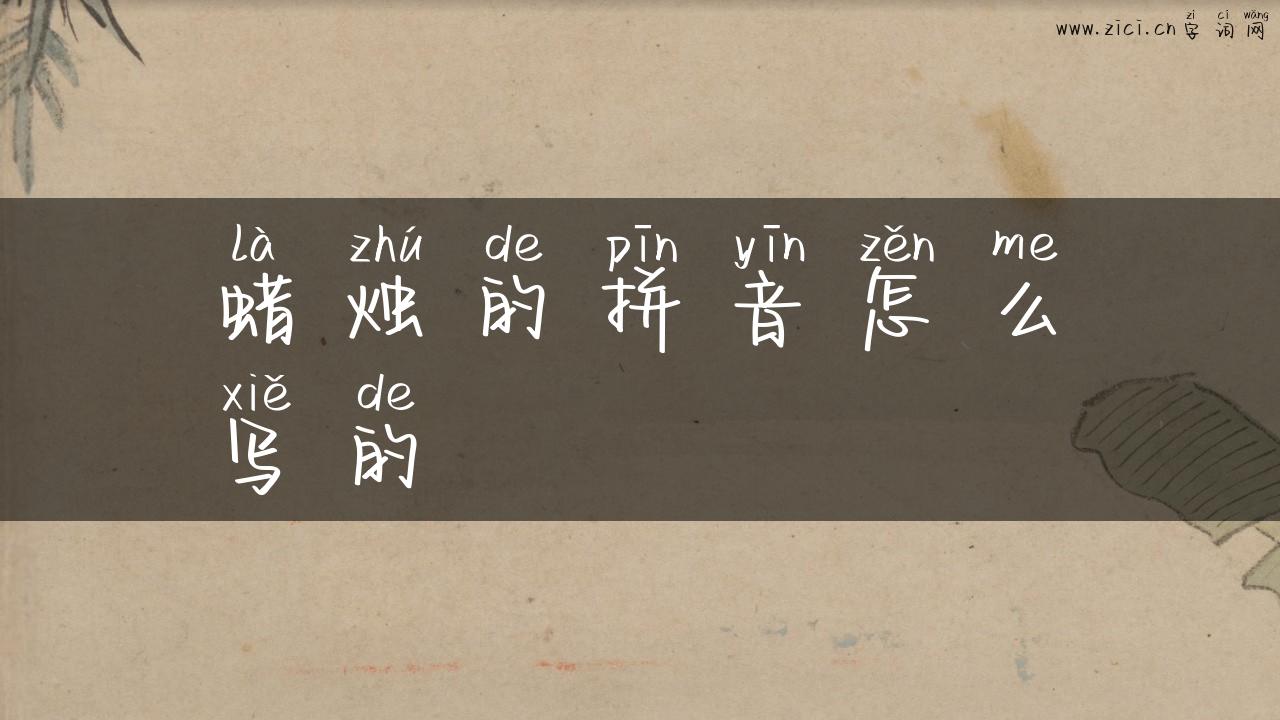 zì cí wǎng
www.zici.cn 字词网
là zhú de pīn yīn zěn me
蜡烛的拼音怎么
xiě de
写的